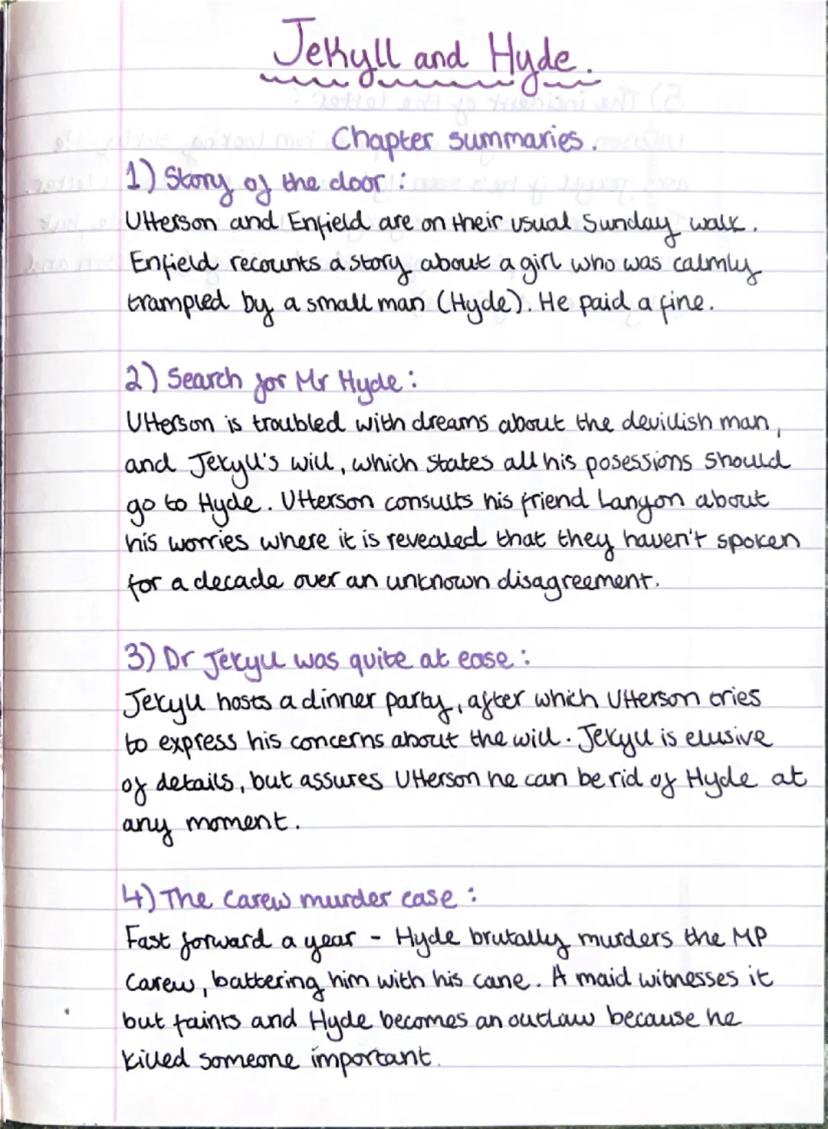 Jekyll and Hyde.
Chapter summaries.
1) Story of the door:
Utterson and Enfield are on their usual Sunday walk.
Enfield recounts a story about a girl who was calmly
trampled by a small man (Hyde). He paid a fine.
2) Search for Mr Hyde:
Utterson is troubled with dreams about the devilish man,
and Jekyll's will, which states all his posessions should
go to Hyde. Utterson consults his friend Lanyon about
his worries where it is revealed that they haven't spoken
for a decade over an unknown disagreement.
3) Dr Jekyll was quite at ease:
Jekyll hosts a dinner party, after which Utterson tries
to express his concerns about the will. Jekyll is elusive
of details, but assures Utterson he can be rid of Hyde at
any moment.
4) The Carew murder case:
Fast forward a year - Hyde brutally murders the MP
Carew, battering him with his cane. A maid witnesses it
but faints and Hyde becomes an outlaw because he
killed someone important.